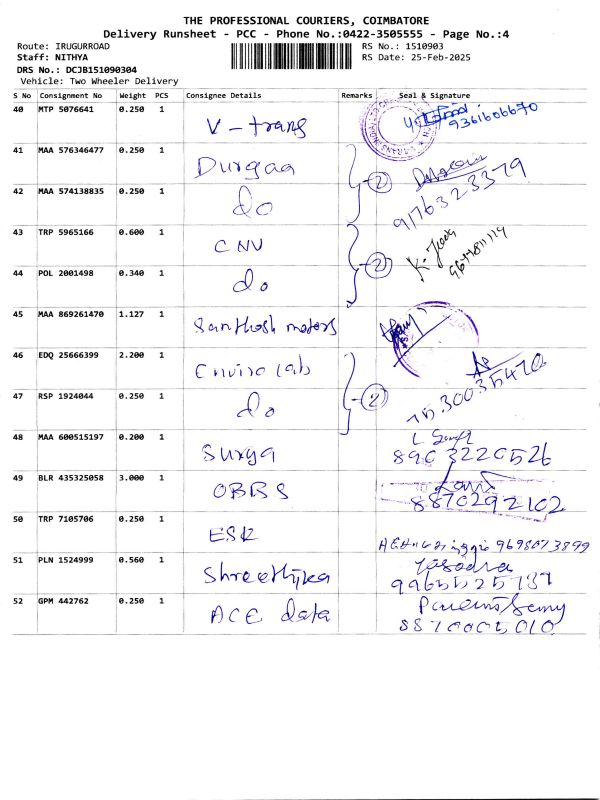 THE PROFESSIONAL COURIERS, COIMBATORE
Delivery Runsheet - PCC - Phone No.:0422-3505555 - Page No.:4
Route: IRUGURROAD
RS No.: 1510903
Staff: NITHYA
RS Date: 25-Feb-2025
DRS No.: DCJB151090304
Vehicle: Two Wheeler Delivery
S No Consignment No Weight PCS Consignee Details Remarks Seal & Signature
40 MTP 5076641 0.250 1 V - trans 9361606670
41 MAA 576346477 0.250 1 Durgaa 2
42 MAA 574138835 0.250 1 do 9176323379
43 TRP 5965166 0.600 1 CNV 2
44 POL 2001498 0.340 1 do
45 MAA 869261470 1.127 1 Santhosh motors
46 EDQ 25666399 2.200 1 Enviro lab 2
47 RSP 1924044 0.250 1 do 7530035470
48 MAA 600515197 0.200 1 Surya 8903220526
49 BLR 435325058 3.000 1 OBRS 8870292102
50 TRP 7105706 0.250 1 ESK
51 PLN 1524999 0.560 1 Shreethika Yasodra
52 GPM 442762 0.250 1 ACE data
8870005010